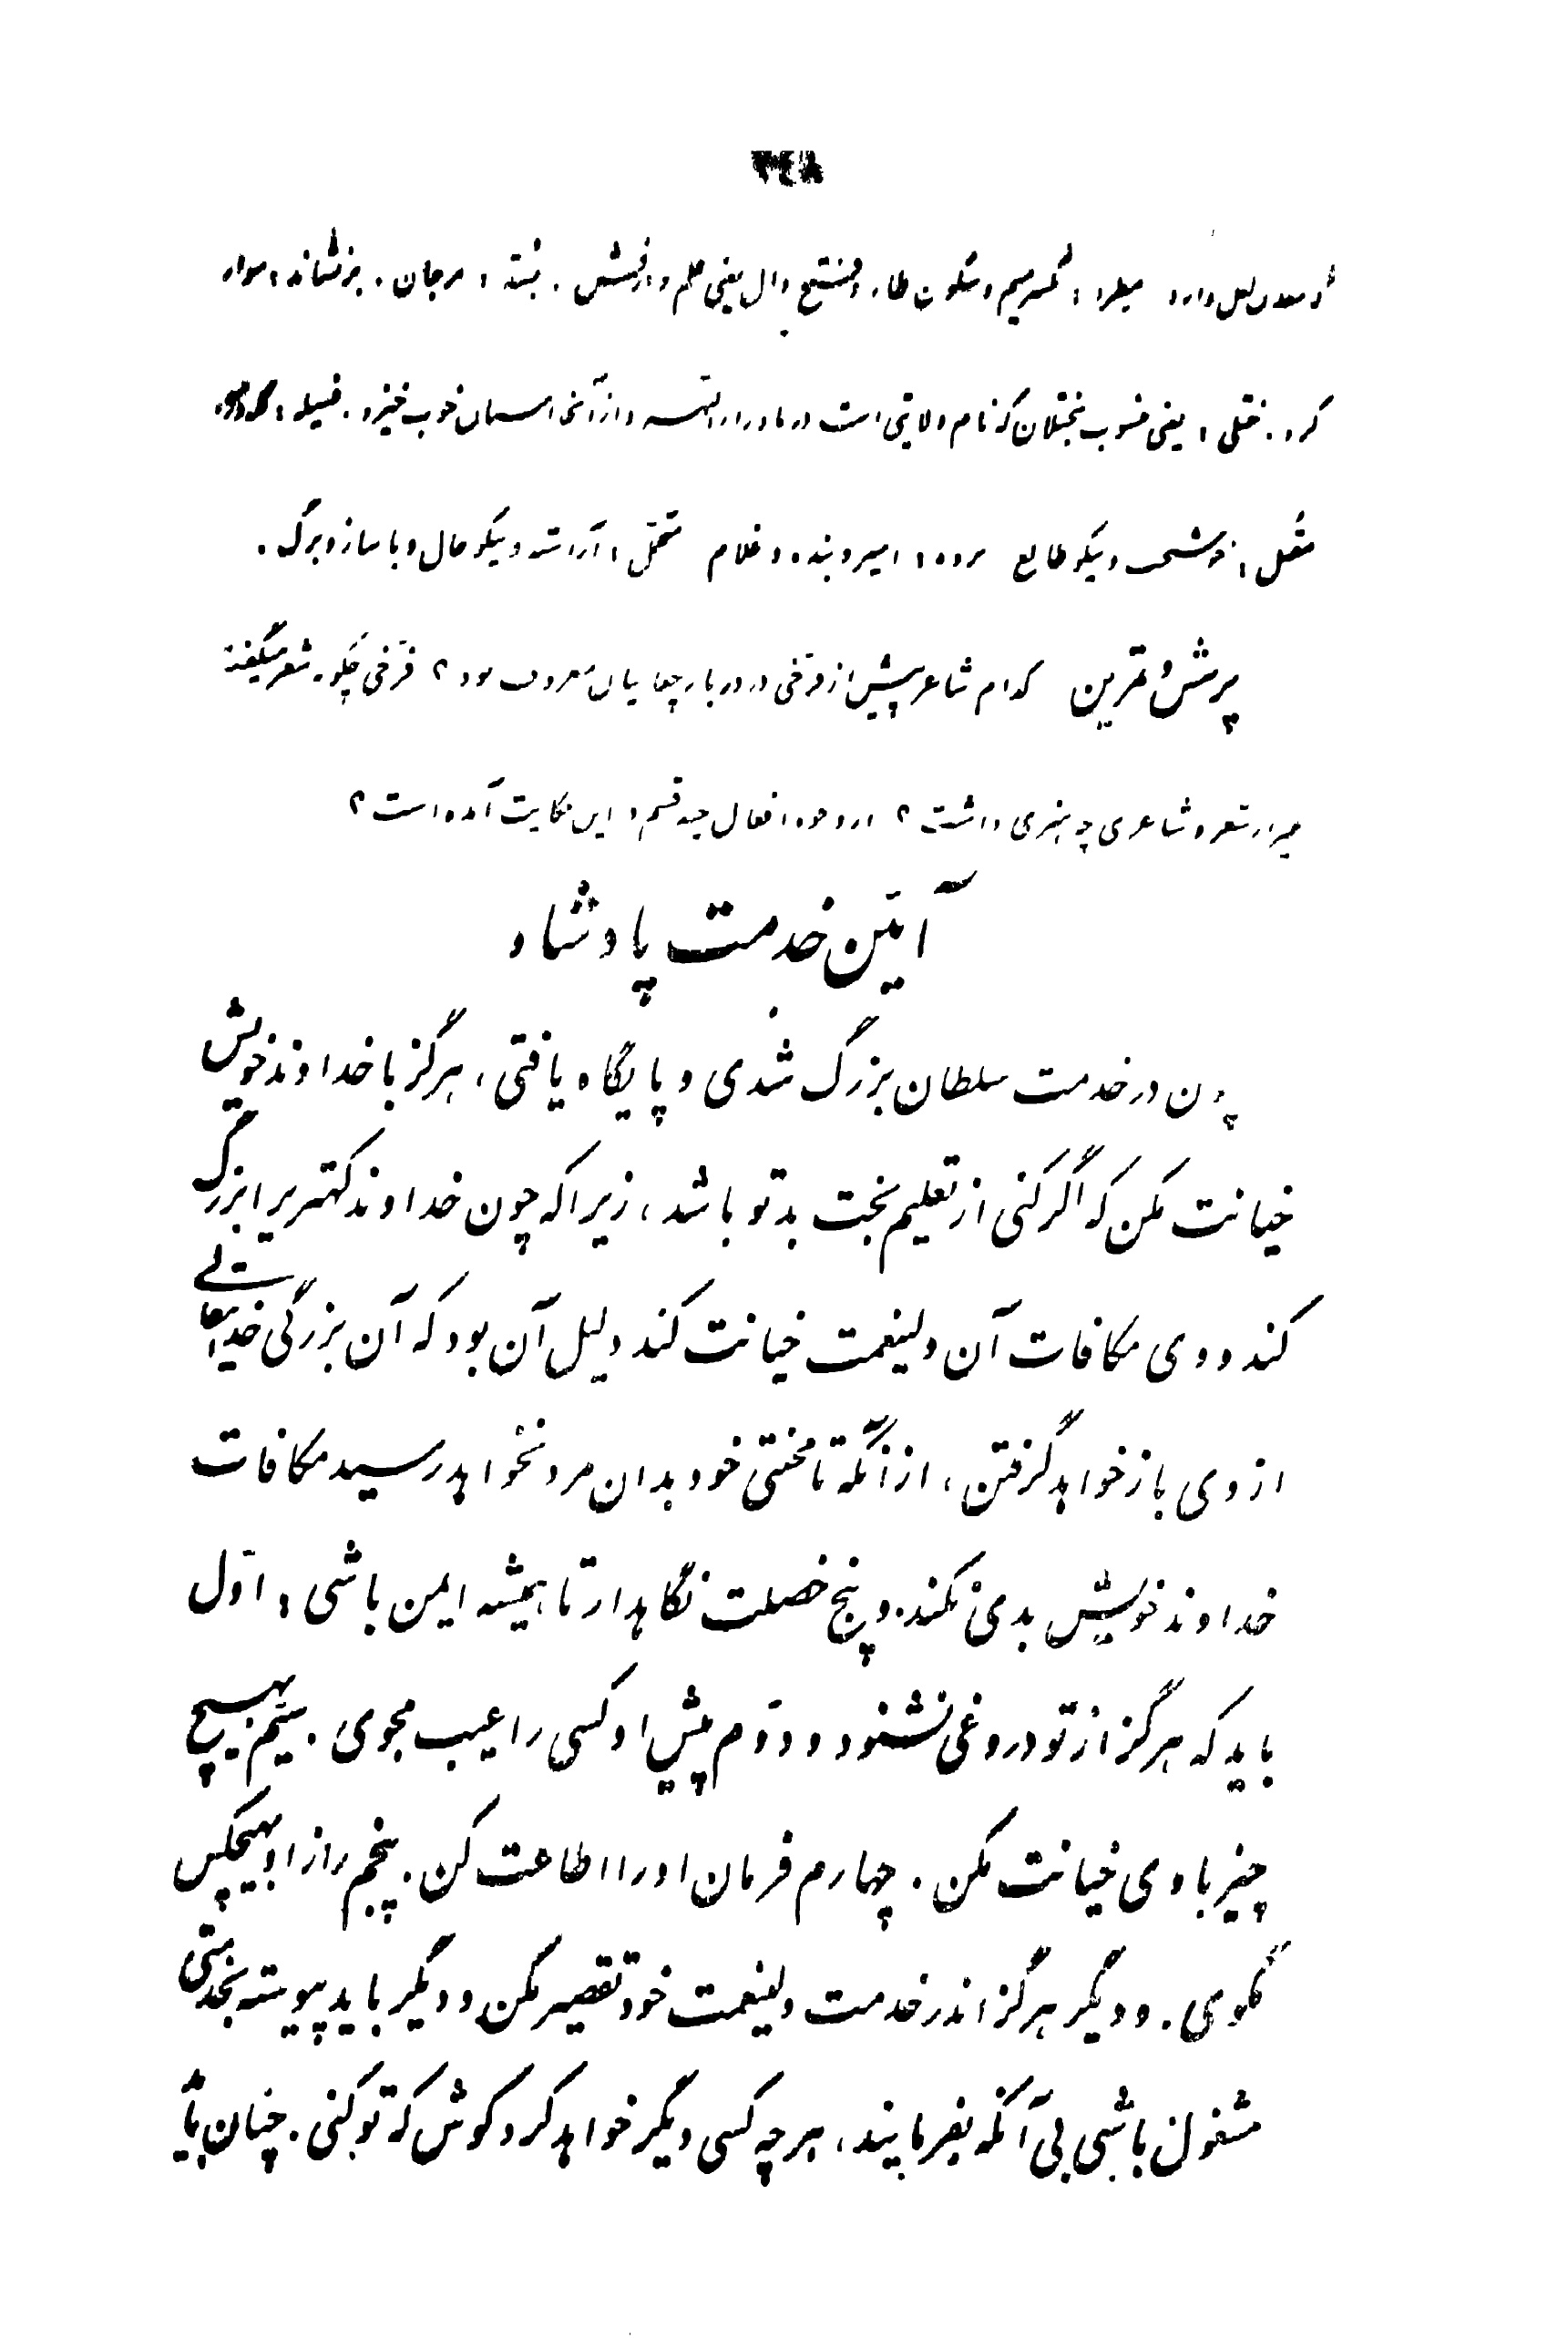 ۳۴۸
که معدن لعل دارد مطرد : بکسر میم و سکون طاء و فتح دال یعنی علم و درفش . بسد : مرجان . برنشاند : سوار
کرد . ختلی : یعنی منسوب بختلان که نام ولایتی است در ماوراءالنهر و از آنجا اسبان خوب خیزد . فسیله :
مقبل : خوشبخت و نیکو طالع برده : اسیر و بنده و غلام متجمل : آراسته و نیکو حال و با ساز و برگ .
پرسش و تمرین کدام شاعر پیش از فرخی در دربار چغانیان معروف بود ؟ فرخی چگونه شعر میگفت
غیر از شعر و شاعری چه هنری داشت ؟ از وجوه افعال چند قسم در این حکایت آمده است ؟
آئین خدمت پادشاه
چون در خدمت سلطان بزرگ شدی و پایگاه یافتی ، هرگز با خداوند خویش
خیانت مکن که اگر کنی از تعلیم بخت بد تو باشد ، زیرا که چون خداوند کهتریرا بزرگ
کند و وی مکافات آن ولینعمت خیانت کند دلیل آن بود که آن بزرگی خدایتعالی
از وی باز خواهد گرفتن ، از آنکه تا سختی خود بدان مرد نخواهد رسید مکافات
خداوند خویش بدی نکند . و پنج خصلت نگاهدار تا همیشه ایمن باشی : اوّل
باید که هرگز از تو دروغی نشنود و دوّم پیش او کسی را عیب مجوی . سیّم بهیچ
چیز با وی خیانت مکن . چهارم فرمان او را اطاعت کن . پنجم راز او بهیچکس
مگوی . و دیگر هرگز اندر خدمت ولینعمت خود تقصیر مکن و دیگر باید پیوسته بخدمتی
مشغول باشی بی آنکه بفرمایند ، هر چه کسی دیگر خواهد کرد کوش که تو کنی . چنان باید